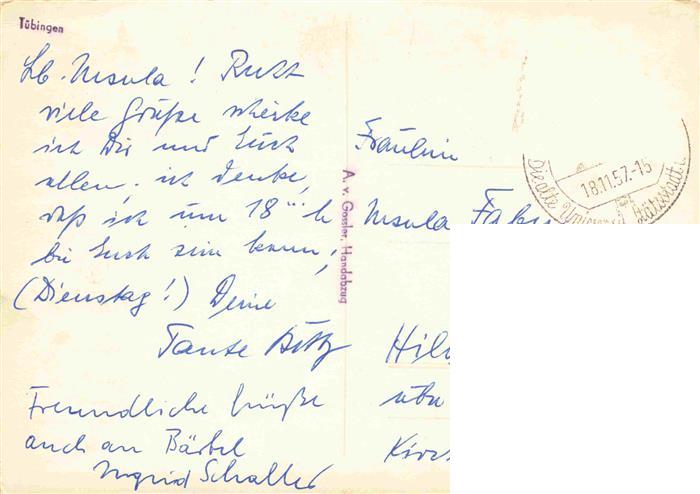 Tübingen
Lb. Ursula! Recht
viele Grüße schicke
ich Dir und Euch
allen; ich denke,
daß ich um 18 h
bei Euch sein kann;
(Dienstag!) Deine
Tante
Freundliche Grüße
auch an Bärbel
Ingrid Schaller
A. v. Gossler, Handabzug
18.11.57.-15
Die alte
Fräulein
Ursula